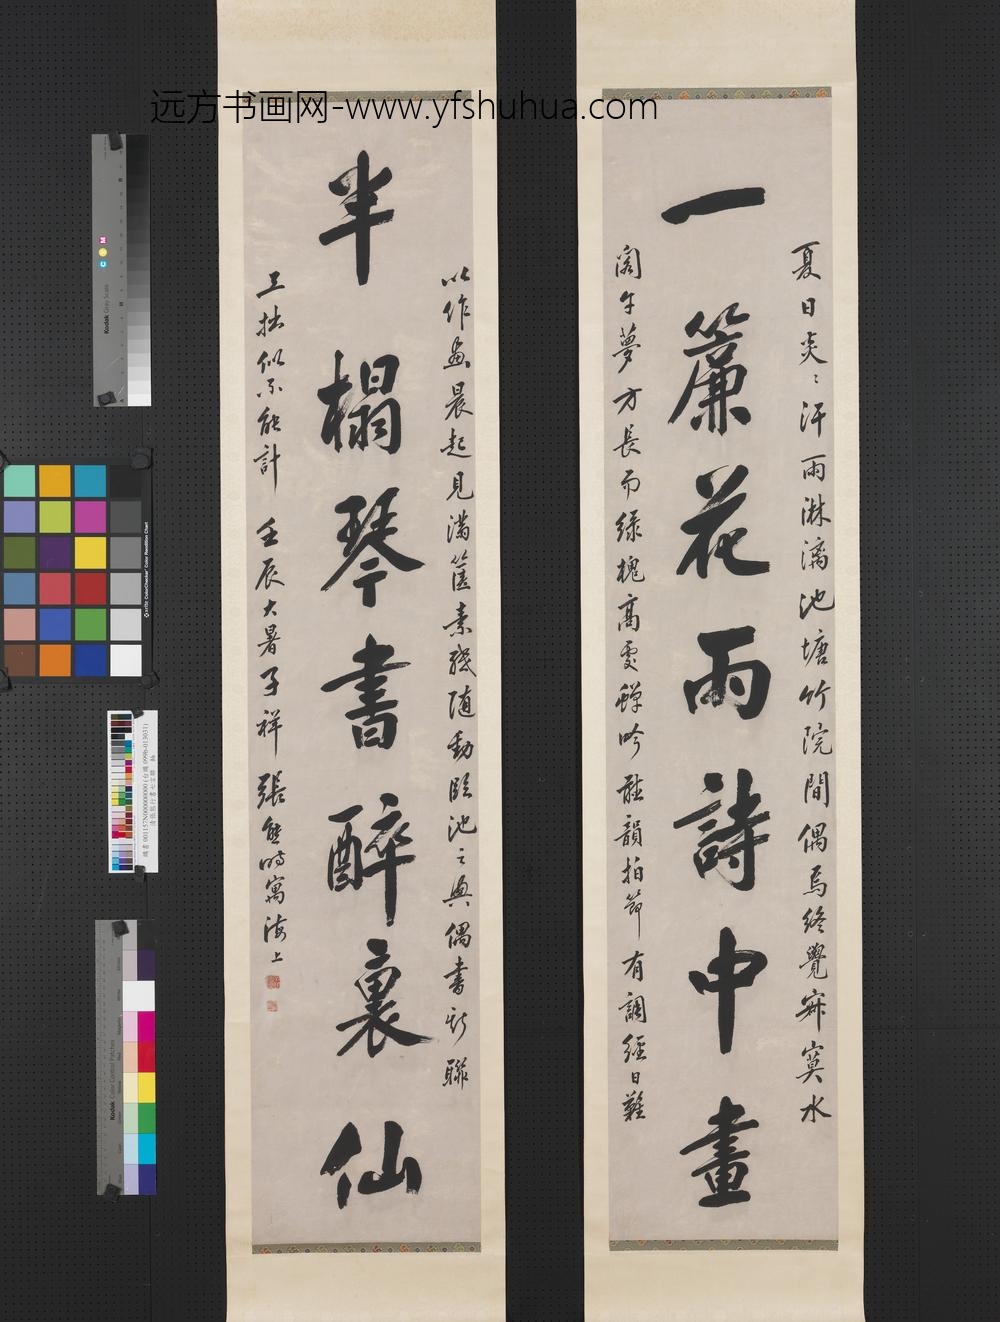 远方书画网-www.yfshuhua.com
一簾花雨詩中畫
夏日炎〻汗雨淋漓池塘竹院間偶焉終覺寂寞水
閣午夢方長而綠槐高處蟬吟 韻拍節有調經日難
半榻琴書醉裏仙
以作畫晨起見滿篋素殘隨動臨池之興偶書 聯
工拙似不能計 壬辰大暑子祥張熊時寓海上
Kodak Gray Scale
C Y M
Kodak